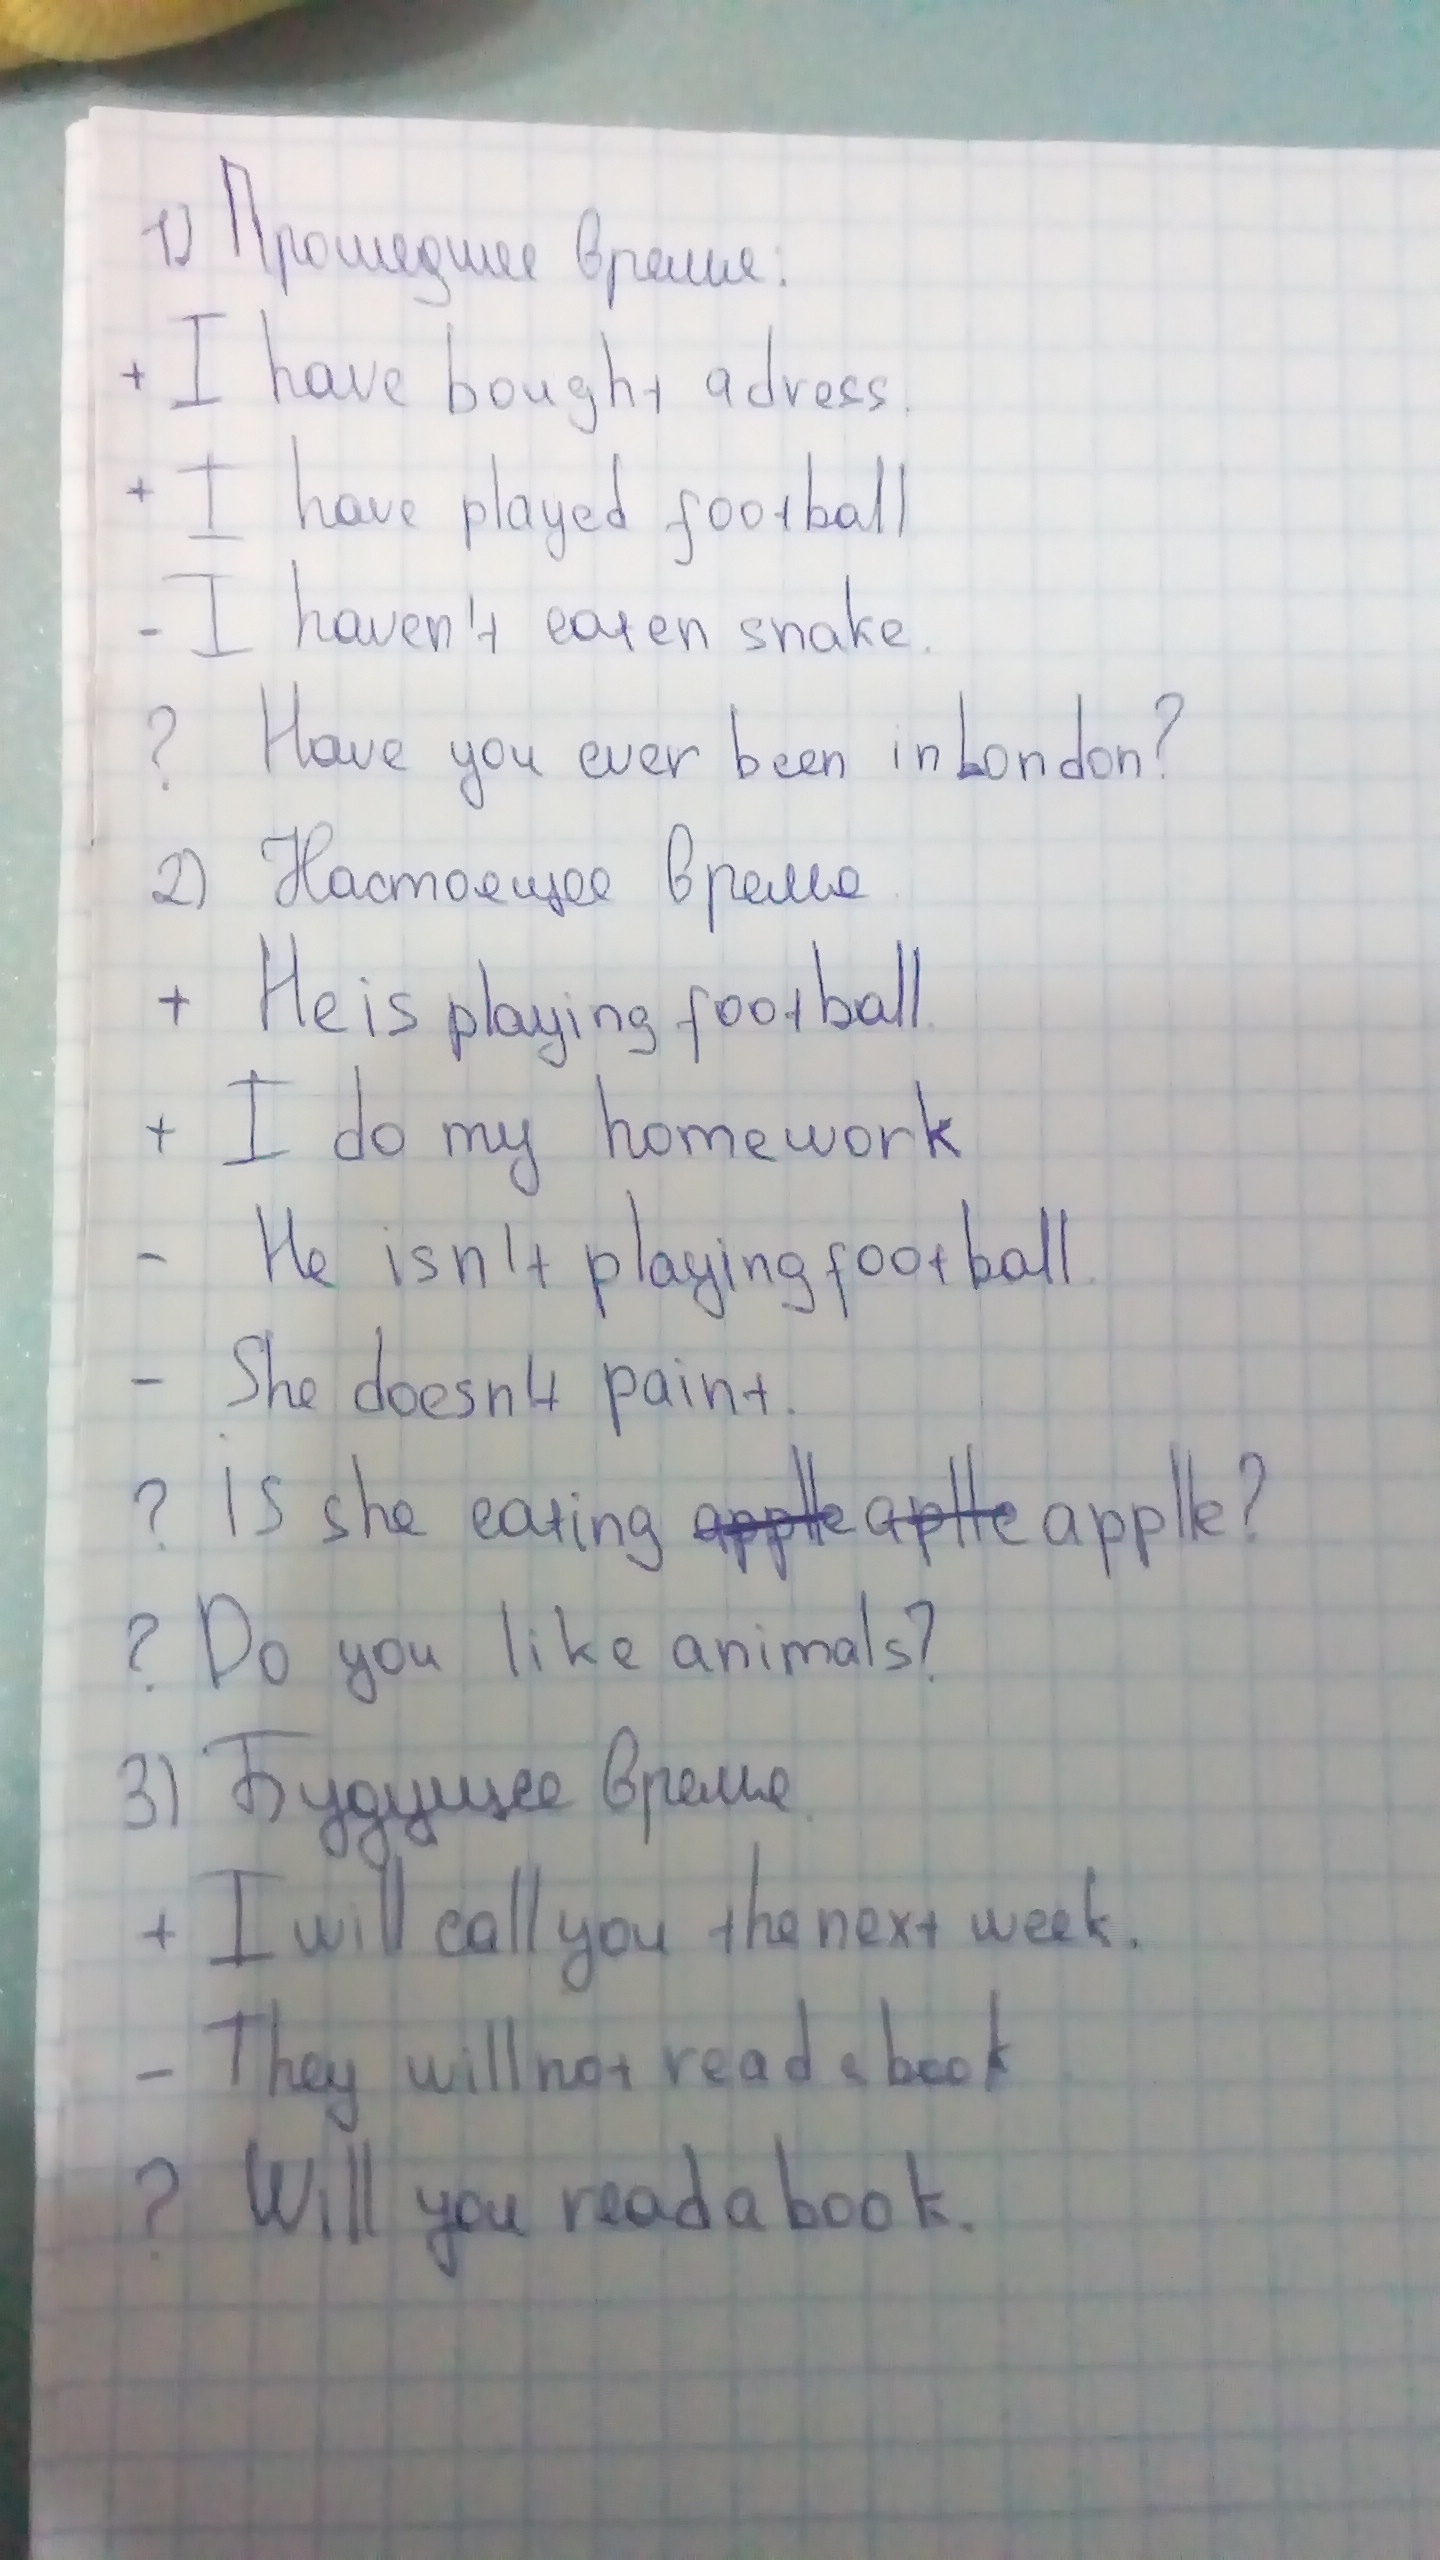 1) Прошедшее время:
+ I have bought a dress.
+ I have played football
- I haven't eaten snake.
? Have you ever been in London?
2) Настоещее время.
+ He is playing football.
+ I do my homework
- He isn't playing football.
- She doesn't paint.
? Is she eating apple aplle applle?
? Do you like animals?
3) Будущее время.
+ I will call you the next week.
- They will not read a book
? Will you read a book.